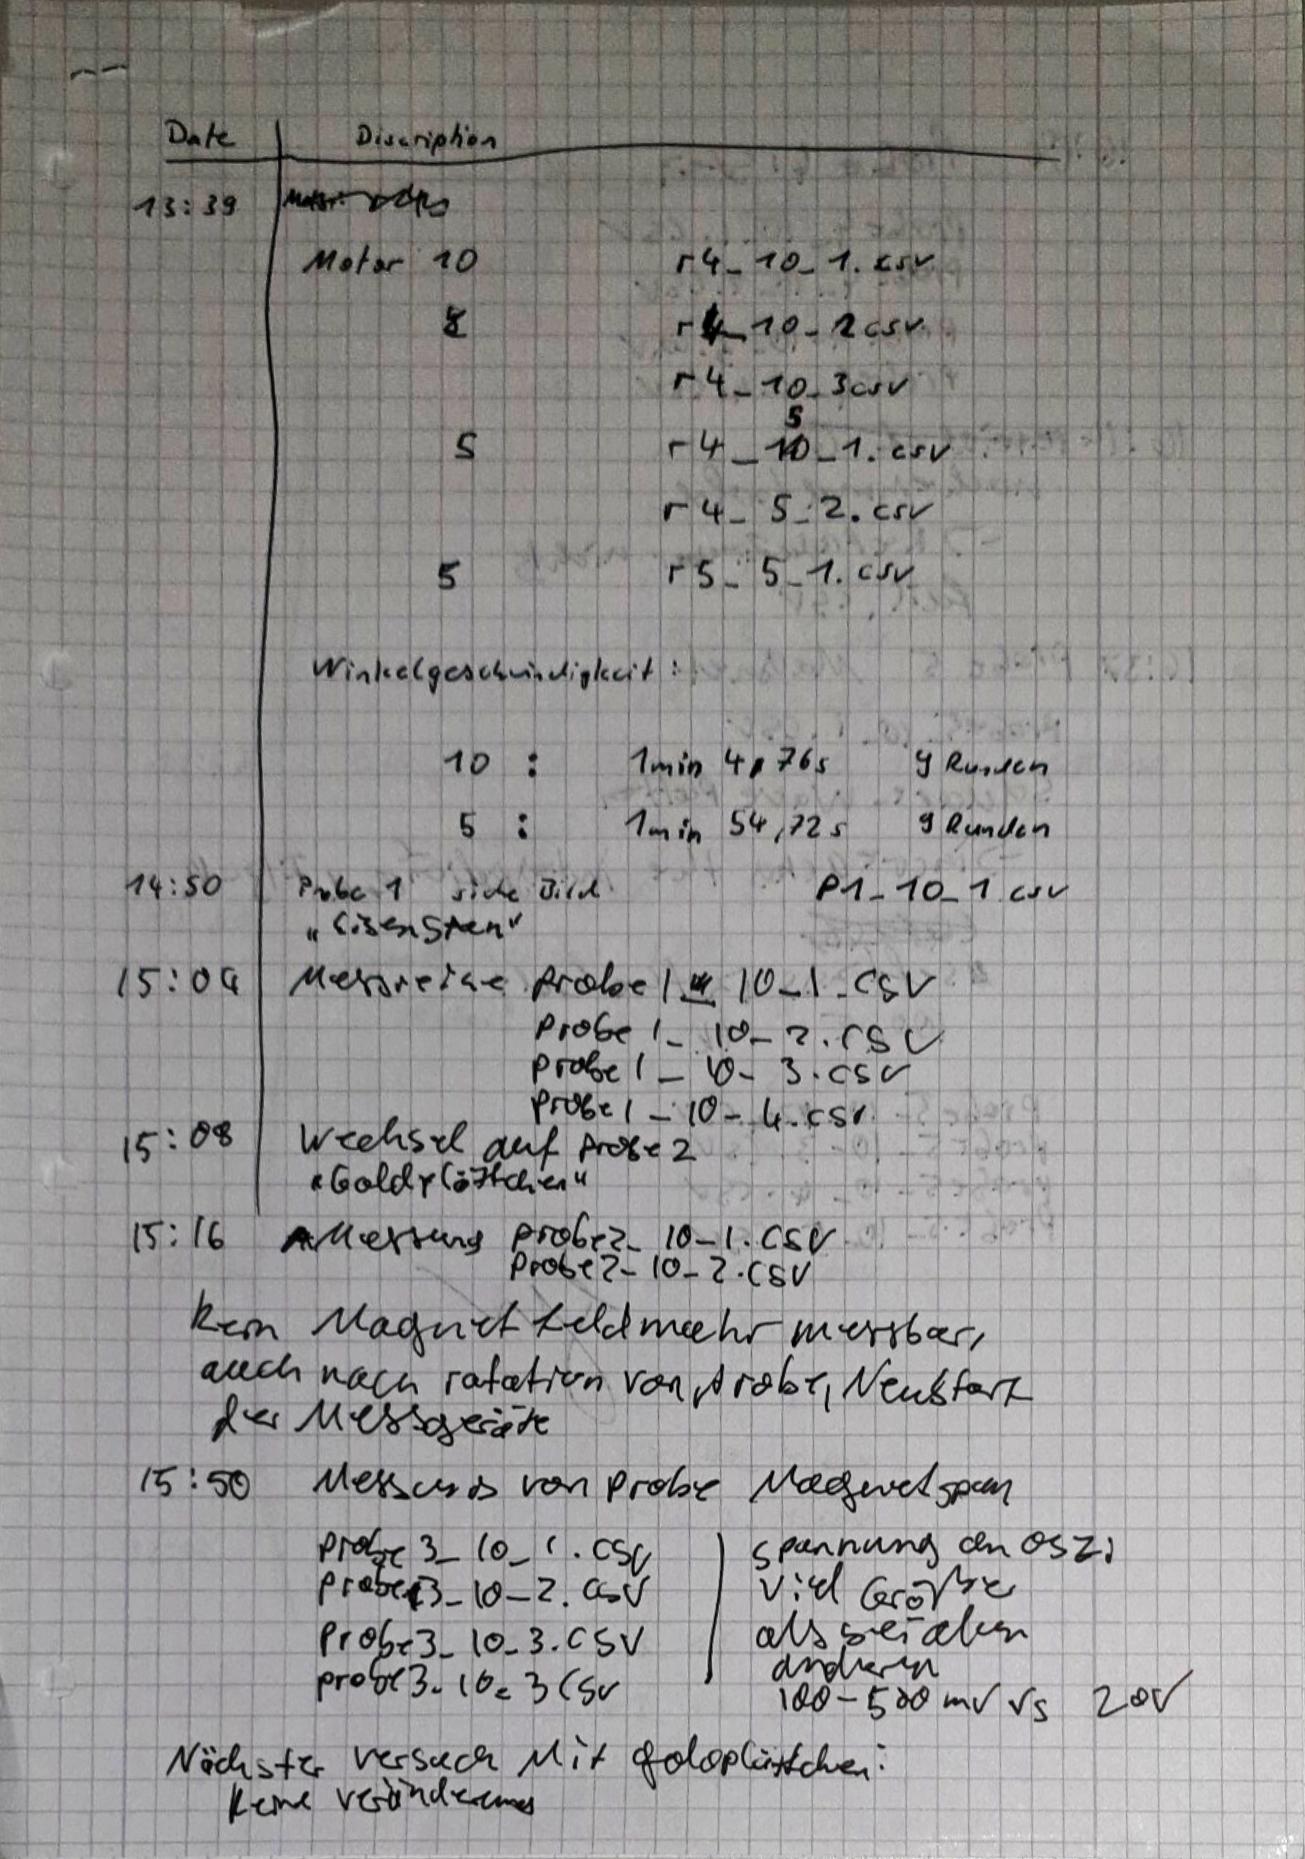 Date Discription
13:39
Motor 10 r4_10_1.csv
8 r4_10_2csv
r4_10_3csv
5
5 r4_10_1.csv
r4_5_2.csv
5 r5_5_1.csv
Winkelgeschwindigkeit:
10 : 1min 4,76s 9 Runden
5 : 1min 54,72s 9 Runden
14:50 Probe 1 siehe Bild P1_10_1.csv
"Eisenstein"
15:04 Messreihe Probe1_10_1.CSV
Probe1_10_2.CSV
Probe1_10_3.CSV
Probe1_10_4.csv
15:08 Wechsel auf Probe 2
"Goldplättchen"
15:16 Messung probe2_10_1.CSV
Probe2_10_2.CSV
Kein Magnetfeld mehr messbar,
auch nach rotation von Probe, Neustart
der Messgeräte
15:50 Messung von Probe Magnetspan
probe3_10_1.CSV spannung an OSZi
probe3_10_2.CSV viel Größer
Probe3_10_3.CSV als bei allen
probe3_10_3CSV anderen
100-500 mV vs 20V
Nächster versuch Mit goldplättchen:
Keine veränderung